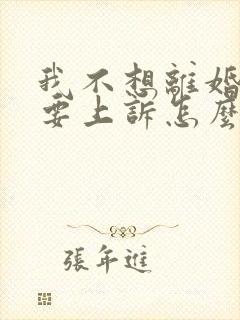 我不想離婚
要上訴怎麼
張年進